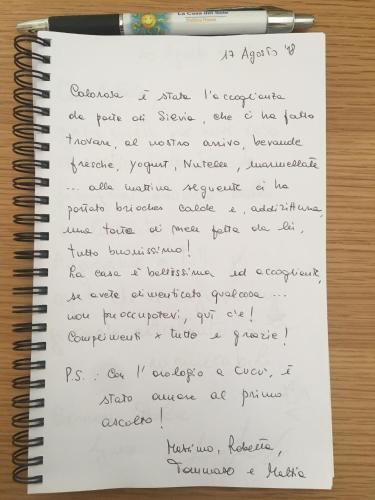 La Casa del Sole
17 Agosto '18
Calorosa è stata l'accoglienza
da parte di Silvia, che ci ha fatto
trovare, al nostro arrivo, bevande
fresche, yogurt, Nutella, marmellate
... alla mattina seguente ci ha
portato brioches calde e, addirittura,
una torta di mele fatta da lei,
tutto buonissimo!
La casa è bellissima ed accogliente,
se avete dimenticato qualcosa ...
non preoccupatevi, qui c'è!
Complimenti x tutto e grazie!
P.S.: Con l'orologio a cucù, è
stato amore al primo
ascolto!
Massimo, Roberta,
Tommaso e Mattia